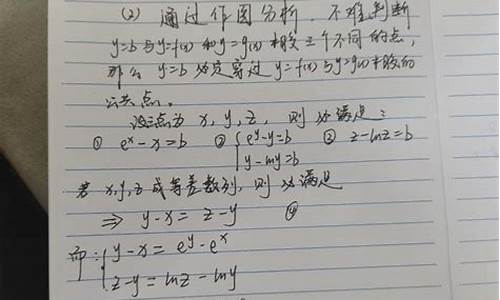 (2) 通过作图分析,不难判断
y=b与y=f(x)和y=g(x)相交三个不同的点,
那么 y=b必定穿过 y=f(x)与y=g(x)相交的
公共点。
设三点为 x, y, z, 则必满足:
① e^x-x=b ② {e^y-y=b ③ z-lnz=b
y-lny=b
若 x,y,z 成等差数列,则必满足
⇒ y-x = z-y ④
而: {y-x = e^y-e^x
z-y = lnz-lny